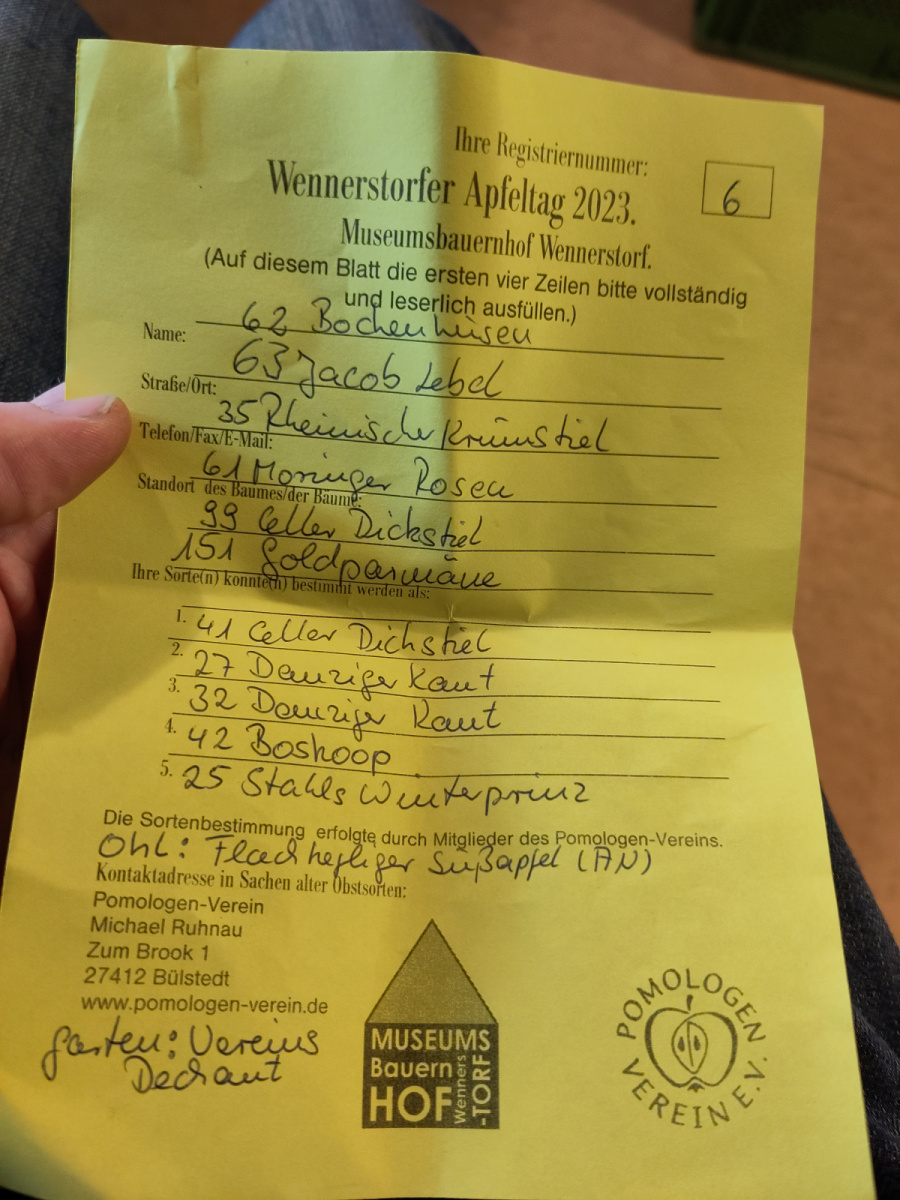 Ihre Registriernummer:
6
Wennerstorfer Apfeltag 2023.
Museumsbauernhof Wennerstorf.
(Auf diesem Blatt die ersten vier Zeilen bitte vollständig
und leserlich ausfüllen.)
62 Bochenhusen
Name:
63 Jacob Lebel
Straße/Ort:
35 Rheinischer Krummstiel
Telefon/Fax/E-Mail:
61 Moringer Rosen
Standort des Baumes/der Bäume:
99 Celler Dickstiel
151 Goldparmäne
Ihre Sorte(n) konnte(n) bestimmt werden als:
1. 41 Celler Dickstiel
2. 27 Danziger Kant
3. 32 Danziger Kant
4. 42 Boskoop
5. 25 Stahls Winterprinz
Die Sortenbestimmung erfolgte durch Mitglieder des Pomologen-Vereins.
Ohl: Süßapfel (AN)
Kontaktadresse in Sachen alter Obstsorten:
Pomologen-Verein
Michael Ruhnau
Zum Brook 1
27412 Bülstedt
www.pomologen-verein.de
Garten: Vereins
Dechant
MUSEUMS
Bauern
HOF
Wenners
-TORF
POMOLOGEN
VEREIN E.V.